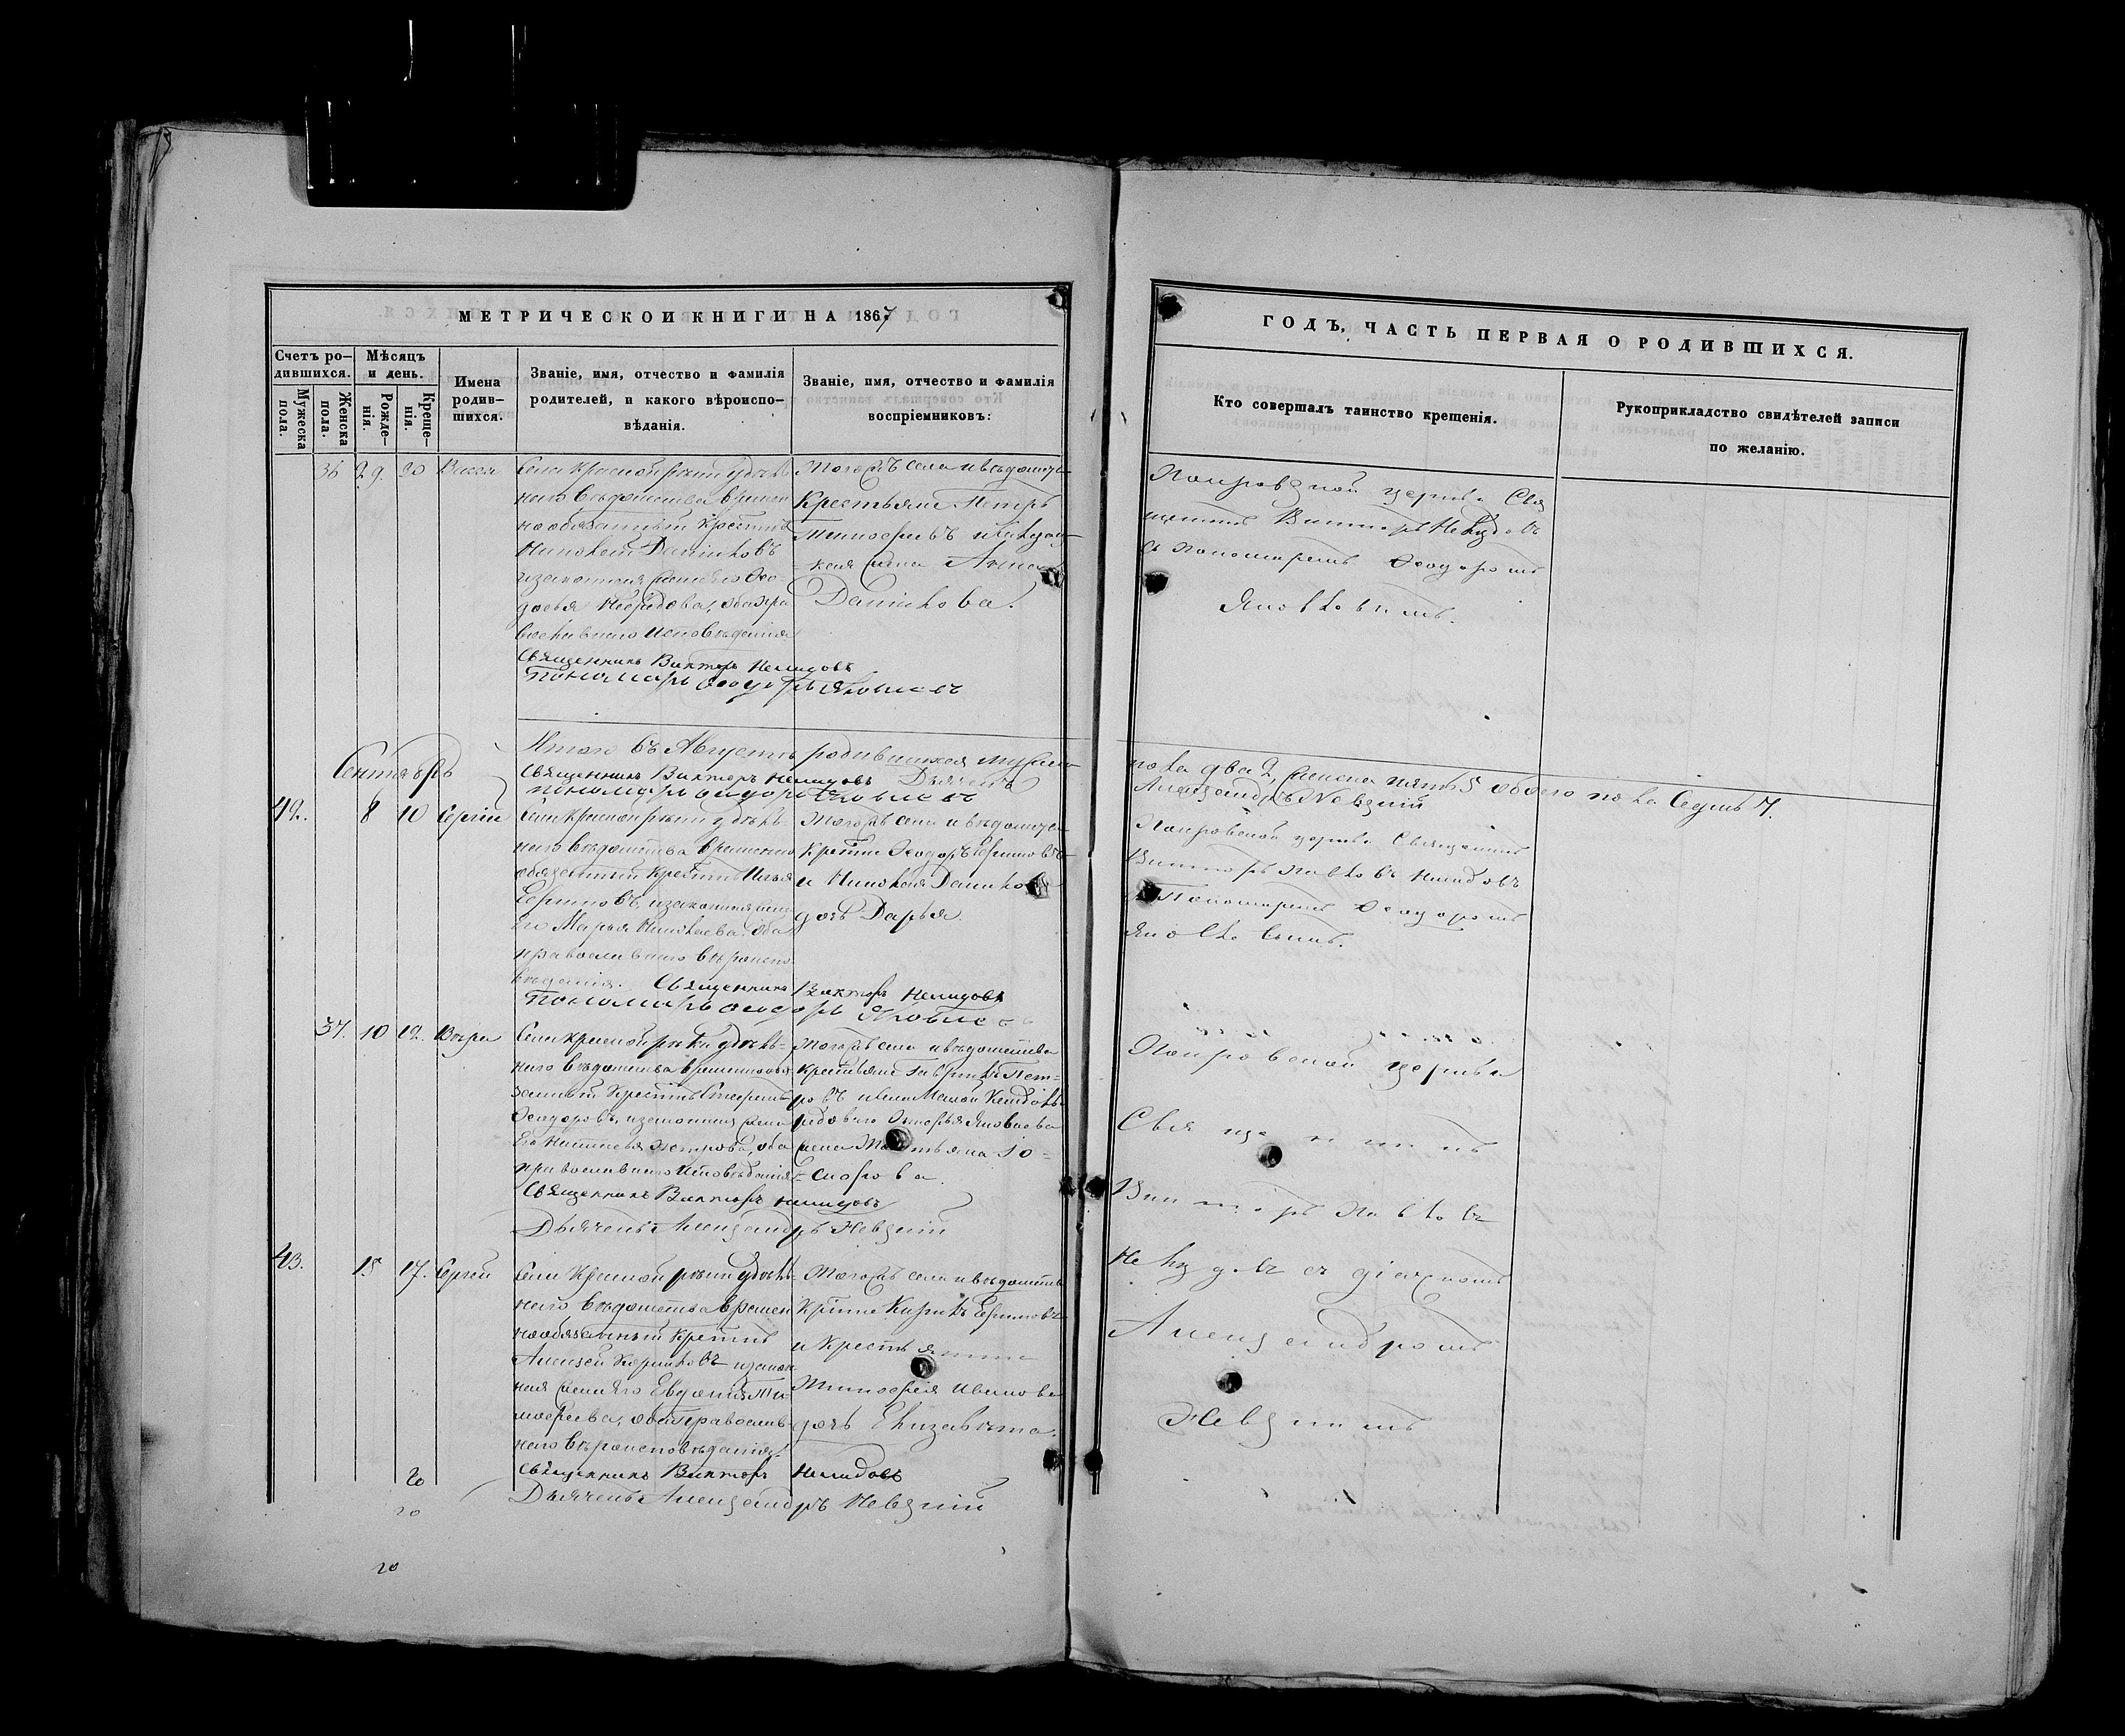 МЕТРИЧЕСКОЙ КНИГИ НА 1867
ГОДЪ, ЧАСТЬ ПЕРВАЯ О РОДИВШИХСЯ.
Счетъ ро-
дившихся.
Мужеска
пола.
Женска
пола.
Мѣсяцъ
и день.
Рожде-
нія.
Креще-
нія.
Имена
родив-
шихся.
Званіе, имя, отчество и фамилія
родителей, и какого вѣроиспо-
вѣданія.
Званіе, имя, отчество и фамилія
воспріемниковъ:
Кто совершалъ таинство крещенія.
Рукоприкладство свидѣтелей записи
по желанію.
36 29. 30 Васса
Села Красной рѣки удѣль
наго вѣдомства времен
нообязанный крестнъ
Николай Даниловъ
и законная жена его Ѳео-
досья обаправо
славнаго исповѣданія
Священникъ Викторъ Нелидовъ
Пономарь Ѳеодоръ Яковлевъ
Тогожъ села и вѣдомства
Крестьяне Петръ
Тимофеевъ
жена Анна
Данилова.
Покровской церкви Свя
щенникъ Викторъ Нелидовъ
съ Пономаремъ Ѳеодоромъ
Яковлевымъ.
Итого въ Августѣ родившихся мужеска
пола два 2, женска пять 5 обоего пола Седмь 7.
Священникъ Викторъ Нелидовъ Дьячекъ
Александръ Невскій
Пономарь Ѳеодоръ Яковлевъ
Сентябрь
42. 8 10 Сергій
Села Красной рѣки удѣль
наго вѣдомства временно
обязанный крестнъ Илья
Ефимовъ, и законная жена
его Марья Николаева. Оба
православнаго вѣроиспо
вѣданія. Священникъ Викторъ Нелидовъ
Пономарь Ѳеодоръ Яковлевъ
Тогожъ села и вѣдомства
Крестне Ѳеодоръ Ефимовъ
и Николая Данилова
дочь Дарья.
Покровской церкви Священникъ
Викторъ Павловъ Нелидовъ
съ Пономаремъ Ѳеодоромъ
Яковлевымъ.
37. 10 12. Вѣра
Села Красной рѣки удѣль-
наго вѣдомства временнообя
занный Крестнъ
Ѳеодоровъ, и законная жена
его Наталья Петрова, оба
православнаго исповѣданія
Священникъ Викторъ Нелидовъ
Дьячекъ Александръ Невскій
Тогожъ села и вѣдомства
крестьяне Гаврилъ Пет-
ровъ
рядоваго Яковлева
жена Татьяна
Покровской церкви
Священникъ
Викторъ Павловъ
Нелидовъ съ діячкомъ
Александромъ
Невскимъ
43. 15 17. Сергей
Села Красной рѣки удѣль-
наго вѣдомства времен
нообязанный Крестнъ
Алексей Кириловъ и закон
ная жена его Евдокія Ти-
мофеева, оба православ-
наго вѣроисповѣданія
Священникъ Викторъ Нелидовъ
Дьячекъ Александръ Невскій
Тогожъ села и вѣдомства
Крестне Кирилъ Ефимовъ
и Крестьянина
Тимофея Иванова
дочь Елизавета.
20
20
20